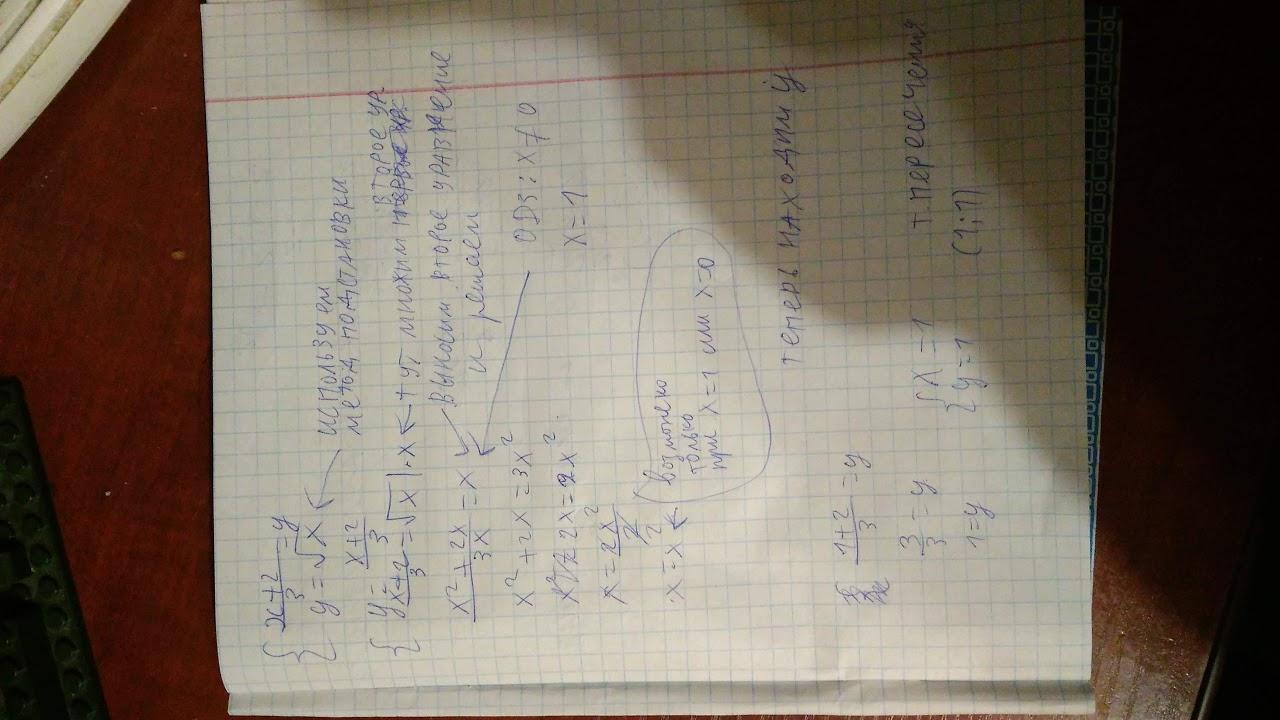 { x+2/3 = y
{ y = √x
используем
метод подстановки
{ y = x+2/3
{ x+2/3 = √x | · x ← тут множим второе ур
x²+2x/3x = x
выносим второе уравнение
и решаем
x² + 2x = 3x²
ODЗ: x ≠ 0
2x = 2x²
x = 1
x = 2x²/2
x = x² ← (возможно
только
при x=1 или x=0
теперь находим y
1+2/3 = y
3/3 = y
1 = y
{ x = 1
{ y = 1
т. пересечения
(1;1)